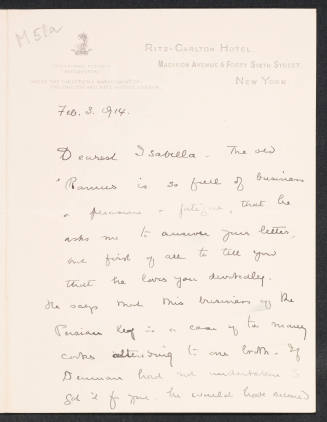 M 51a
RITZ-CARLTON HOTEL
MADISON AVENUE & FORTY SIXTH STREET,
NEW YORK
UNDER THE DIRECTION & MANAGEMENT OF
THE CARLTON AND RITZ HOTELS, LONDON.
Feb. 3. 1914.
Dearest Isabella - The old
is so full of business
& pleasure & fatigue, that he
asks me to answer your letter,
but first of all to tell you
that he loves you devotedly.
He says that this business of the
Persian is a case of too many
cooks attending to one broth. If
Denman had not undertaken to
get it for you, he would have secured